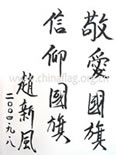 敬愛國旗
信仰國旗
趙新風
二〇〇四.九.八